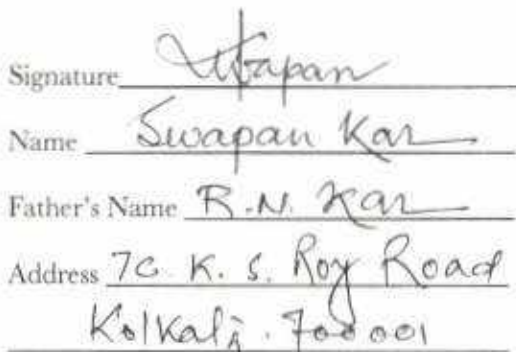 Signature Swapan
Name Swapan Kar
Father's Name R.N. Kar
Address 7C K. S. Roy Road
Kolkata. 700001